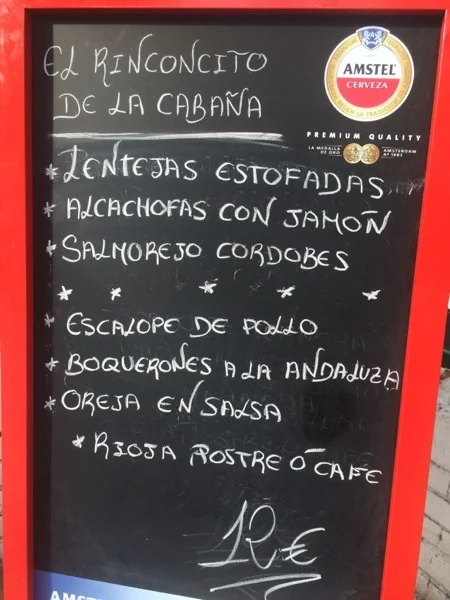 EL RINCONCITO
DE LA CABAÑA
AMSTEL
CERVEZA
PREMIUM QUALITY
LA MEDALLA DE ORO
AMSTERDAM Aº 1883
* LENTEJAS ESTOFADAS
* ALCACHOFAS CON JAMÓN
* SALMOREJO CORDOBES
* * * * *
* ESCALOPE DE POLLO
* BOQUERONES A LA ANDALUZA
* OREJA EN SALSA
* RIOJA POSTRE O CAFE
12€
AMSTEL